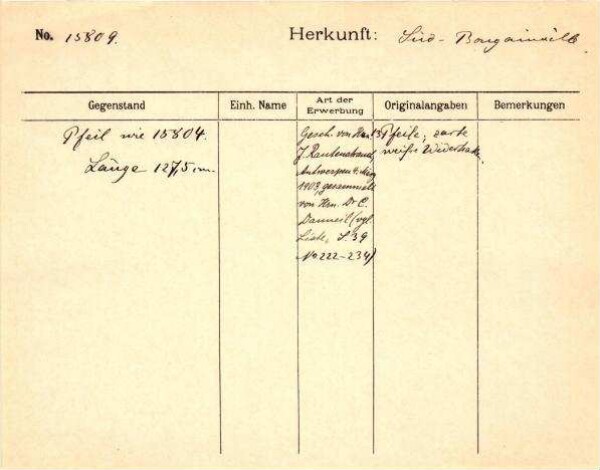 No. 15809. Herkunft: Süd-Bougainville
Gegenstand Einh. Name Art der Erwerbung Originalangaben Bemerkungen
Pfeil wie 15804.
Länge 127,5 cm.
Gesch. von Hrn
J. Rautenstrauch,
Antwerpen
1903, gesammelt
von Hrn. Dr. C.
Danneil (vgl.
Liste, S. 39
No 222-234)
13 Pfeile, zarte
weiße Widerhaken.